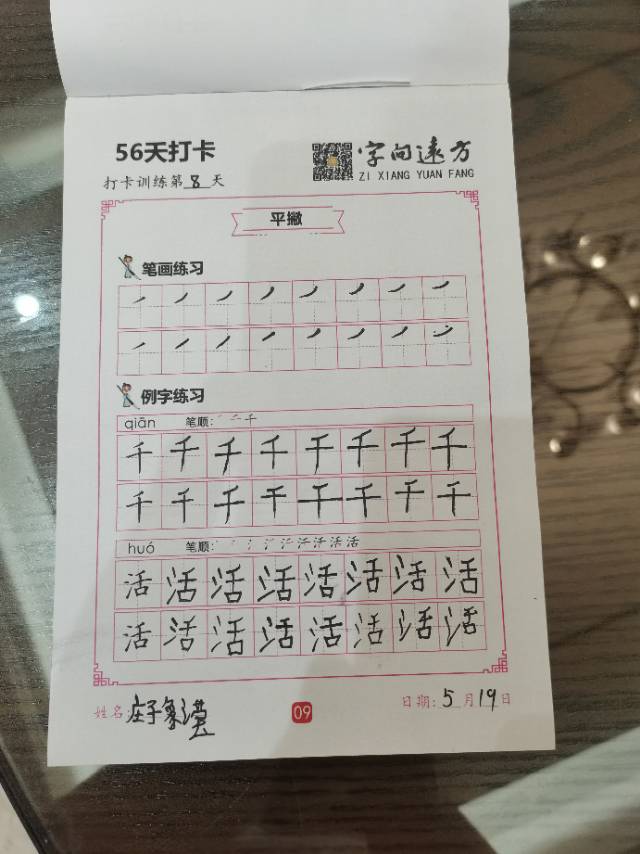 56天打卡
字向远方
ZI XIANG YUAN FANG
打卡训练第8天
平撇
笔画练习
例字练习
qiān 笔顺:
千千千千千千千千
千千千千千千千千
huó 笔顺:
活活活活活活活活
活活活活活活活活
姓名:庄子象
09
日期:5月19日